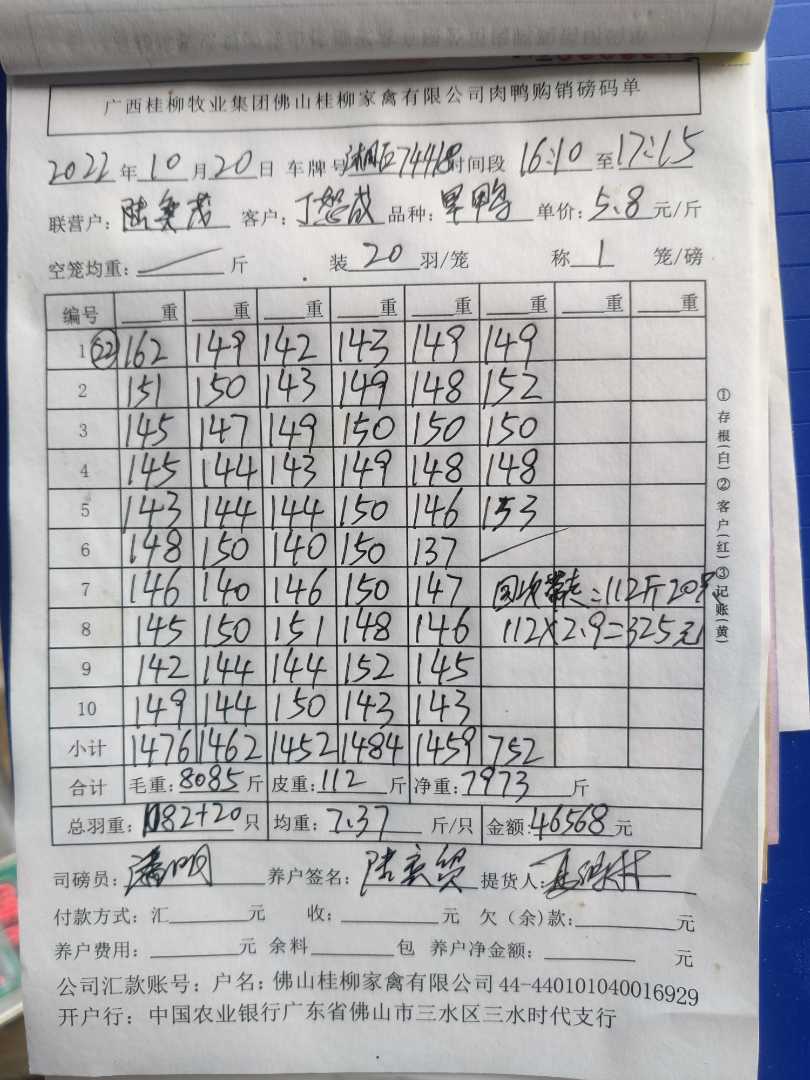 广西桂柳牧业集团佛山桂柳家禽有限公司肉鸭购销磅码单
2022年10月20日 车牌号 74418 时间段 16:10至17:15
联营户: 客户: 品种: 鸭 单价: 5.8元/斤
空笼均重: 斤 装20羽/笼 称1笼/磅
编号 重 重 重 重 重 重 重 重
1 (22) 162 149 142 143 149 149
2 151 150 143 149 148 152
3 145 147 149 150 150 150
4 145 144 143 149 148 148
5 143 144 144 150 146 153
6 148 150 140 150 137
7 146 140 146 150 147 =112斤20只
8 145 150 151 148 146 112×2.9=325元
9 142 144 144 152 145
10 149 144 150 143 143
小计 1476 1462 1452 1484 1459 752
合计 毛重:8085斤 皮重:112斤 净重:7973斤
总羽重:1082+20只 均重:7.37斤/只 金额:46568元
司磅员: 养户签名: 提货人:
付款方式:汇 元 收: 元 欠(余)款: 元
养户费用: 元 余料 包 养户净金额: 元
公司汇款账号:户名:佛山桂柳家禽有限公司44-440101040016929
开户行:中国农业银行广东省佛山市三水区三水时代支行
①存根(白)②客户(红)③记账(黄)